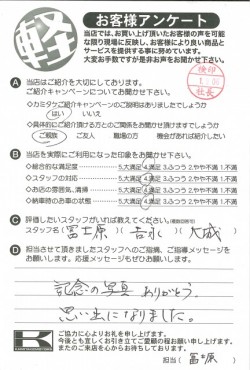 軽
お客様アンケート
当店では、お買い上げ頂いたお客様の声を可能
な限り現場に反映し、お客様により良い商品と
サービスを提供する事に努めています。
大変お手数ですが是非お声をお聞かせ下さい。
検印
社長
A 当店はご紹介を大切にしております。
ご紹介キャンペーンについてお聞かせ下さい。
◇カミタケご紹介キャンペーンのご説明はありましたでしょうか
はい いいえ
◇具体的にご紹介頂ける方とのご関係をお聞かせ頂けますでしょうか
ご親族 ご友人 職場の方 機会があれば紹介したい
B 当店を実際にご利用になった印象をお聞かせ下さい。
◇総合的な満足度 5.大満足 4.満足 3.ふつう 2.やや不満 1.不満
◇スタッフの対応 5.大満足 4.満足 3.ふつう 2.やや不満 1.不満
◇お店の雰囲気、清掃 5.大満足 4.満足 3.ふつう 2.やや不満 1.不満
◇納車時のお車の状態 5.大満足 4.満足 3.ふつう 2.やや不満 1.不満
C 評価したいスタッフがいれば教えてください。(複数回答可)
スタッフ名( 冨士原 )( 吉永 )( 大成 )
D 担当させて頂きましたスタッフへのご指摘、ご指導メッセージを
お願いします。応援メッセージもぜひお願いします。
記念の写真 ありがとう。
思い出になりました。
K
ご協力に心よりお礼を申し上げます。
今後とも宜しくお引き立てご愛顧の程お願い申し上げます。
またのご来店を心からお待ちしております。
担当( 冨士原 )